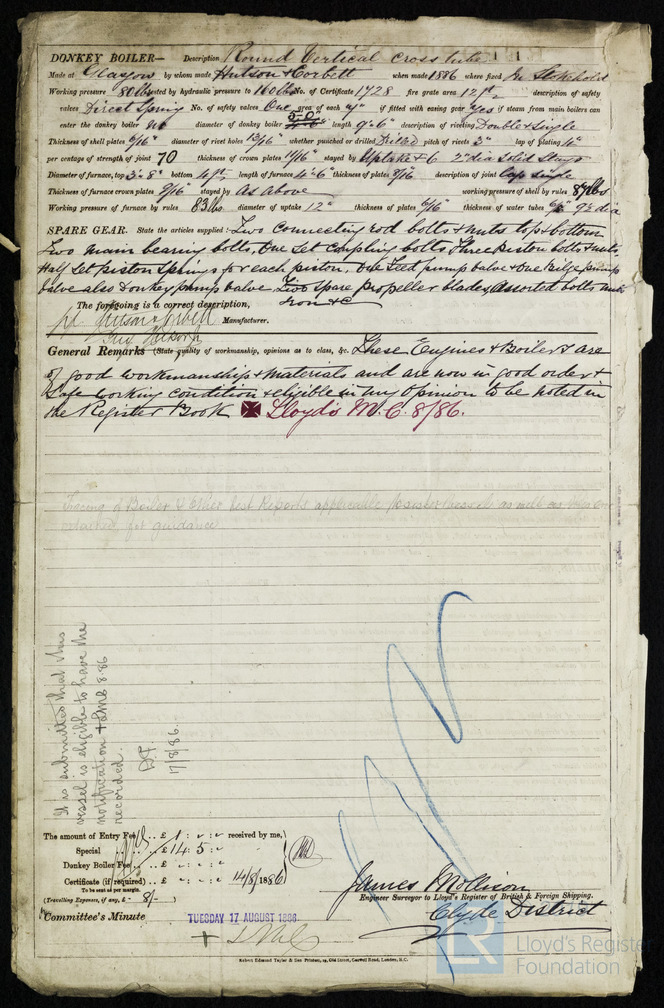 DONKEY BOILER— Description Round Vertical Cross tube
Made at Glasgow by whom made Hutson & Corbett when made 1886 where fixed In Stokehold
Working pressure 80 lbs tested by hydraulic pressure to 160 lbs No. of Certificate 1728 fire grate area 12 ft description of safety
valves Direct Spring No. of safety valves One area of each 4" if fitted with easing gear Yes if steam from main boilers can
enter the donkey boiler No diameter of donkey boiler 5-0" length 9'-6" description of riveting Double & Single
Thickness of shell plates 6/16" diameter of rivet holes 13/16" whether punched or drilled Drilled pitch of rivets 3" lap of plating 4"
per centage of strength of joint 70 thickness of crown plates 11/16" stayed by Uptake & 6 2" dia Solid Stays
Diameter of furnace, top 3'-8" bottom 4 ft length of furnace 4'-6" thickness of plates 9/16" description of joint Lap Single
Thickness of furnace crown plates 9/16" stayed by As Above working pressure of shell by rules 84 lbs
Working pressure of furnace by rules 83 lbs diameter of uptake 12" thickness of plates 6/16" thickness of water tubes 9" dia
SPARE GEAR. State the articles supplied:— Two connecting rod bolts & nuts top & bottom
Two main bearing bolts, One Set Coupling bolts Three Piston bolts & nuts,
Half Set Piston Springs for each piston, One Feed pump valve & One Bilge pump
Valve also Donkey pump valve Two spare propeller blades, Assorted bolts nuts
Iron &c
The foregoing is a correct description,
Manufacturer.
General Remarks (State quality of workmanship, opinions as to class, &c. These Engines & Boilers are
of good workmanship & Materials and are now in good order &
Safe working condition & eligible in my Opinion to be noted in
the Register Book ✠ Lloyd's M.C. 8/86.
Tracing of Boiler & Other test Reports applicable to sister vessel as well as
attached for guidance
It is submitted that this
vessel is eligible to have the
notification + LMC 8.86
recorded.
17/8/86.
The amount of Entry Fee .. £ 1 : - : - received by me,
Special .. £ 14 : 5 :
Donkey Boiler Fee .. £ : :
Certificate (if required) .. £ : : 14/8/1886
To be sent as per margin.
(Travelling Expenses, if any, £ - 8/-)
James Mollison
Engineer Surveyor to Lloyd's Register of British & Foreign Shipping.
Clyde District
Committee's Minute TUESDAY 17 AUGUST 1886
+ LMC
Robert Edmund Taylor & Son Printers, 19, Old Street, Goswell Road, London, E.C.
LR Lloyd's Register
Foundation